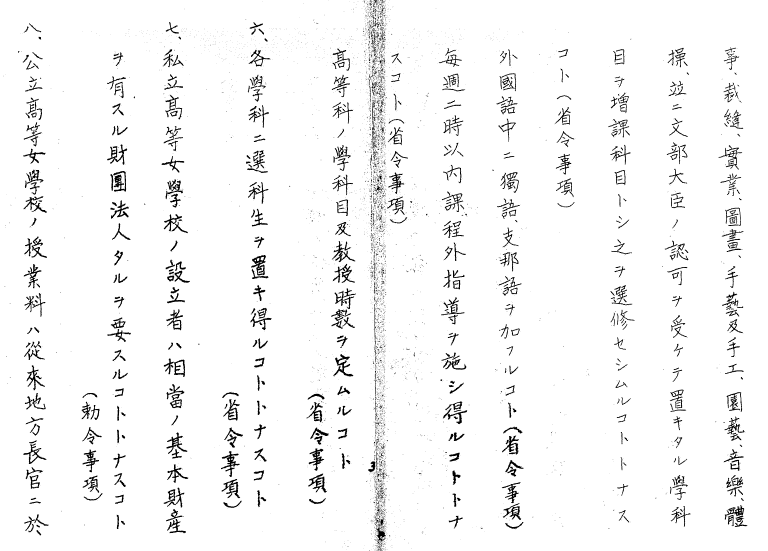 事、裁縫、實業、圖畫、手藝及手工、園藝、音樂、體
操、竝ニ文部大臣ノ認可ヲ受ケテ置キタル學科
目ヲ增課科目トシ之ヲ選修セシムルコトトナス
コト(省令事項)
外國語中ニ獨語、支那語ヲ加フルコト(省令事項)
每週二時以內課程外指導ヲ施シ得ルコトトナ
スコト(省令事項)
高等科ノ學科目及教授時數ヲ定ムルコト
(省令事項)
六、各學科ニ選科生ヲ置キ得ルコトトナスコト
(省令事項)
七、私立高等女學校ノ設立者ハ相當ノ基本財產
ヲ有スル財團法人タルヲ要スルコトトナスコト
(勅令事項)
八、公立高等女學校ノ授業料ハ從來地方長官ニ於
3